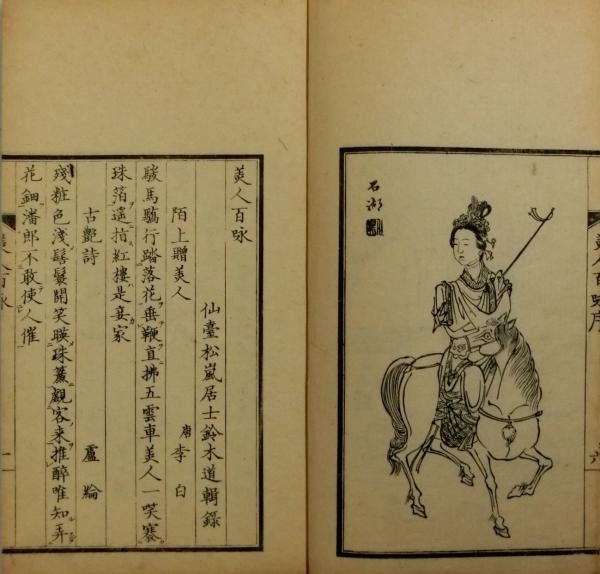 美人百咏序
石湖
美人百咏
仙臺松嵐居士鈴木道輯錄
陌上贈美人 唐 李白
駿馬驕行踏落花垂鞭直拂五雲車美人一笑褰
珠箔遙指紅樓是妾家
古艷詩 盧綸
殘粧色淺髻鬟開笑暎珠簾覷客来推醉唯知弄
花鈿潘郎不敢使人催
美人百咏 一